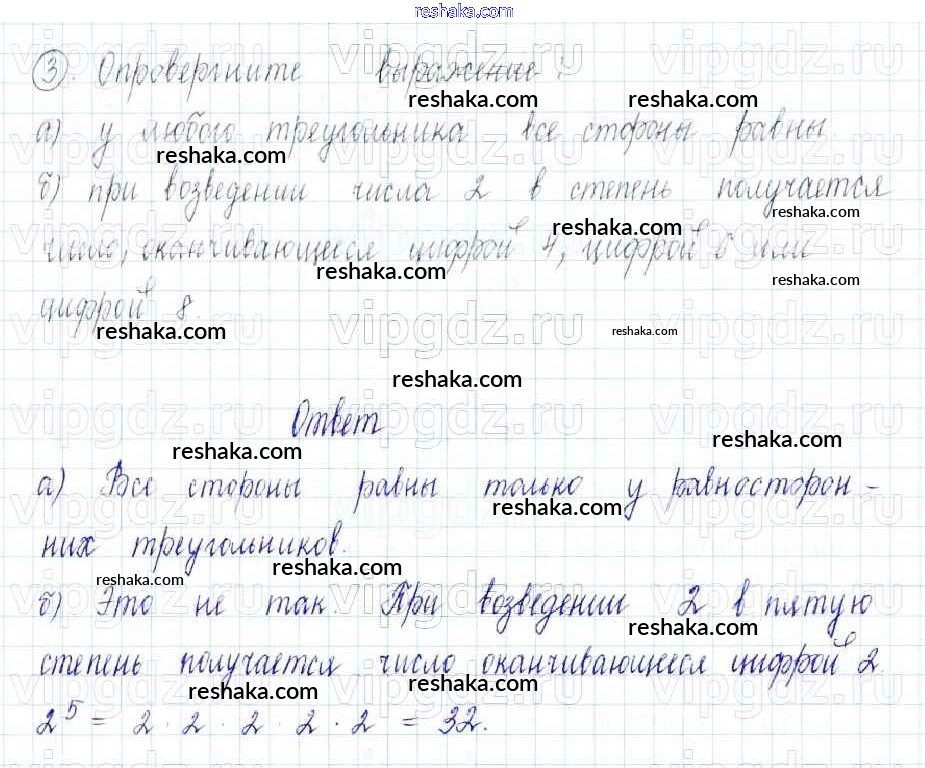 reshaka.com
③. Опровергните выражение:
а) у любого треугольника все стороны равны
б) при возведении числа 2 в степень получается
число, оканчивающееся цифрой 4, цифрой 6 или
цифрой 8.
Ответ
а) Все стороны равны только у равносторон-
них треугольников.
б) Это не так. При возведении 2 в пятую
степень получается число оканчивающееся цифрой 2.
2⁵ = 2 · 2 · 2 · 2 · 2 = 32.